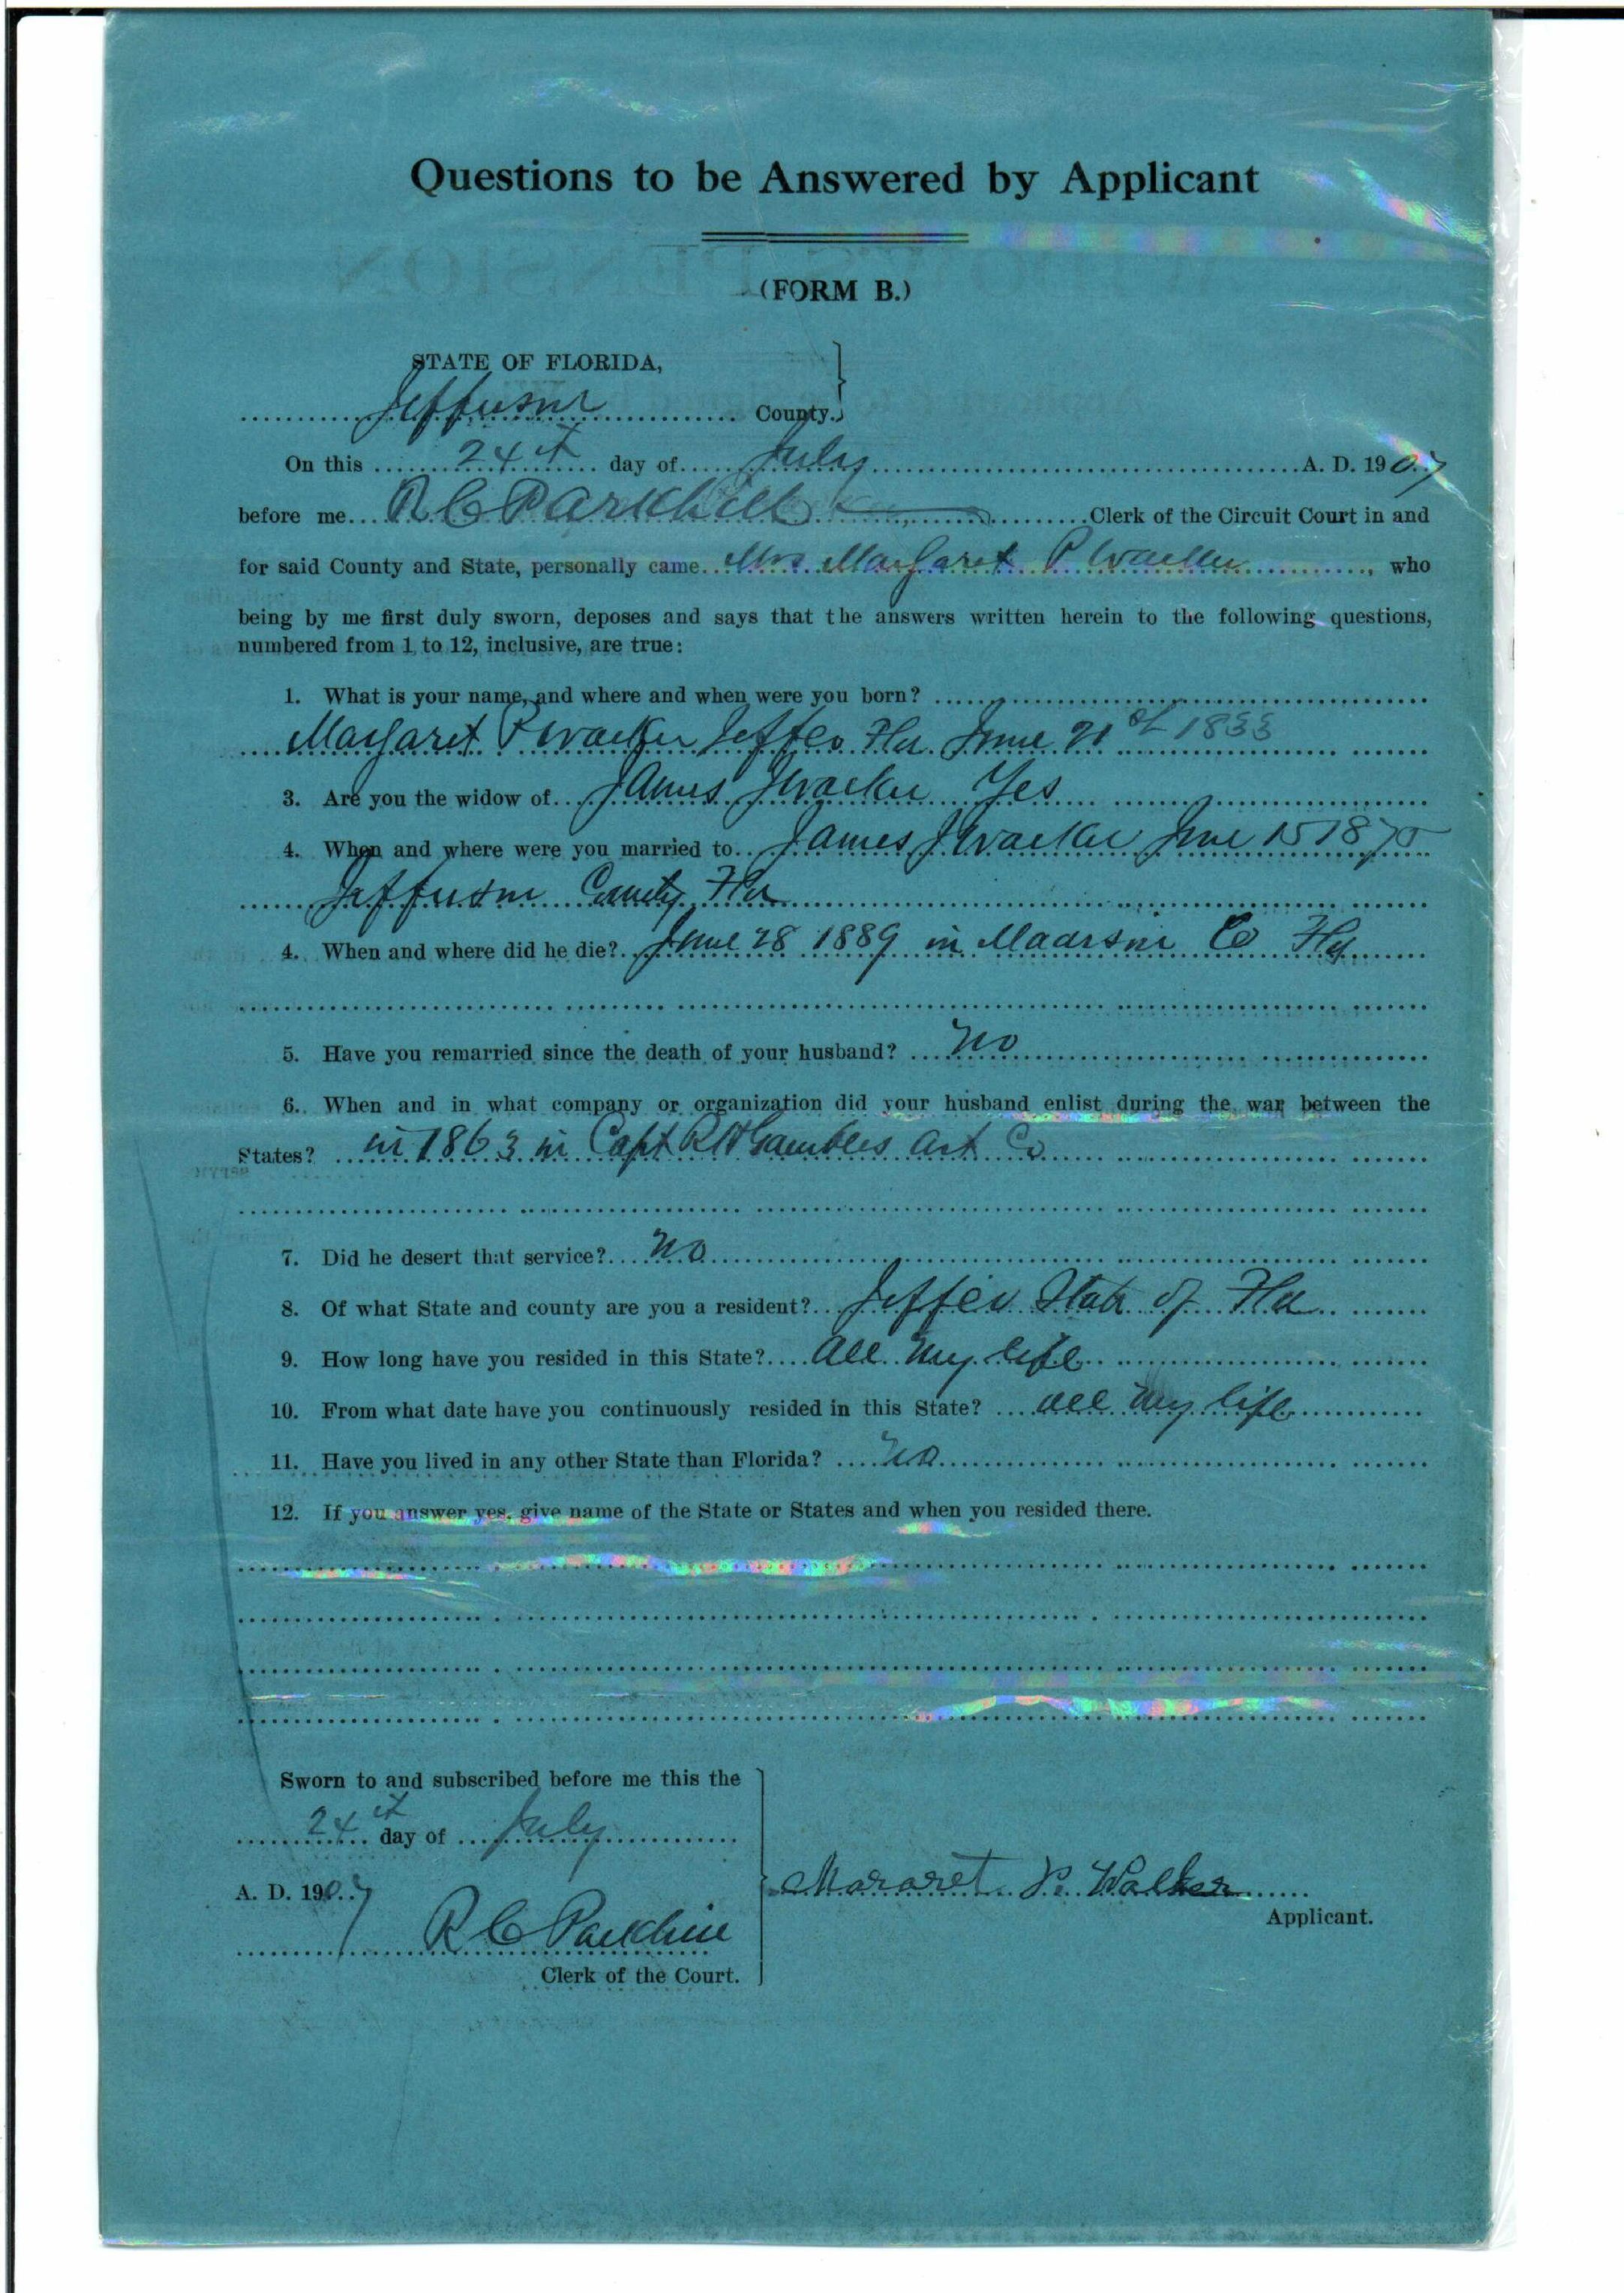 Questions to be Answered by Applicant
(FORM B.)
STATE OF FLORIDA,
Jefferson County.
On this 24th day of July A. D. 1907
before me R C Parkhill Clerk of the Circuit Court in and
for said County and State, personally came Mrs Margaret P Walker, who
being by me first duly sworn, deposes and says that the answers written herein to the following questions,
numbered from 1 to 12, inclusive, are true:
1. What is your name, and where and when were you born?
Margaret P Walker Jeffer Fla June 21st 1833
3. Are you the widow of James J Walker Yes
4. When and where were you married to James J Walker June 15 1875
Jefferson County Fla
4. When and where did he die? June 28 1889 in Madison Co Fla
5. Have you remarried since the death of your husband? No
6. When and in what company or organization did your husband enlist during the war between the
States? in 1863 in Capt R H Gambles Art Co
7. Did he desert that service? No
8. Of what State and county are you a resident? Jeffer State of Fla
9. How long have you resided in this State? All my life
10. From what date have you continuously resided in this State? all my life
11. Have you lived in any other State than Florida? No
12. If you answer yes, give name of the State or States and when you resided there.
Sworn to and subscribed before me this the
24th day of July
A. D. 1907
R C Parkhill
Clerk of the Court.
Mararet P. Walker
Applicant.